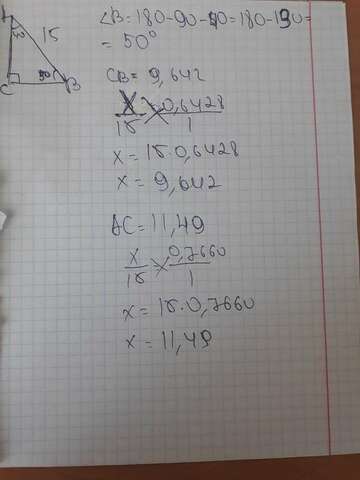 A
40
15
C
50
B
∠B=180-90-40=180-130=
= 50°
CB = 9,642
x/15 = 0,6428/1
x = 15·0,6428
x = 9,642
AC = 11,49
x/15 = 0,7660/1
x = 15·0,7660
x = 11,49